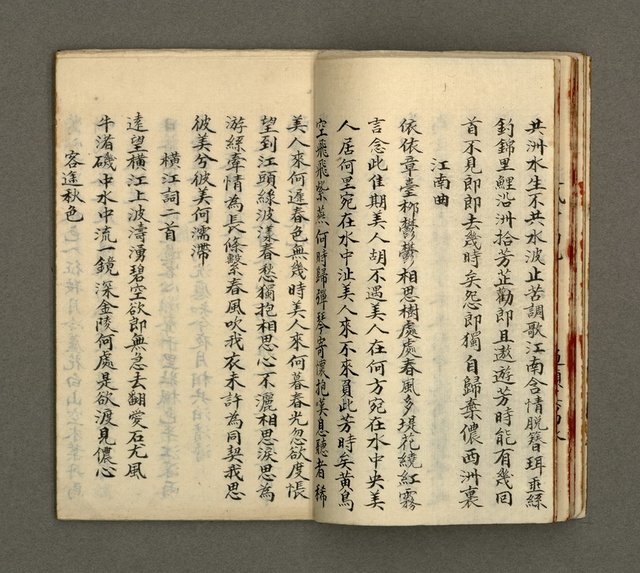 共洲水生不共水波止苦調歌江南含情脫簪珥垂絲
釣錦里鯉沿洲拾芳芷勸郎且遨遊芳時能有幾回
首不見郎郎去幾時矣怨郎獨自歸棄儂西洲裏
江南曲
依依章臺柳鬱鬱相思樹處處春風多堤花繞紅霧
言念此佳期美人胡不遇美人在何方宛在水中央美
人居何里宛在水中沚美人來不來負此芳時矣黃鳥
空飛飛紫燕何時歸彈琴寄懷抱嘆息聽者稀
美人來何遲春色無幾時美人來何暮春光忽欲度悵
望到江頭綠波漾春愁獨抱相思心不灑相思淚思為
游絲牽情為長條繫春風吹我衣未許為同契我思
彼美兮彼美何濡滯
橫江詞二首
遠望橫江上波濤湧碧空欲郎無急去翻愛石尤風
牛渚磯中水中流一鏡深金陵何處是欲渡見儂心
客途秋色